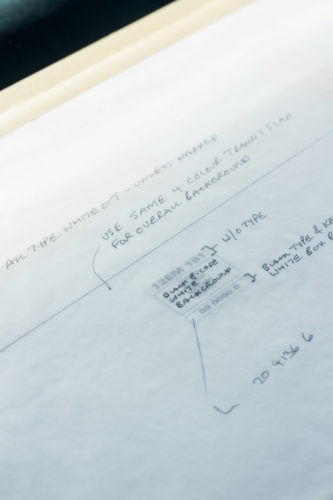 ALL TYPE WHITE OUT - UNLESS MARKED
USE SAME 4 COLOUR TRANSIT SCAN
FOR OVERALL BACKGROUND
W/O TYPE
12EM 191
BLACK B. CODE
WHITE
BACKGROUND
00 0000 0
BLACK TYPE &
WHITE BOX
20 4136 6